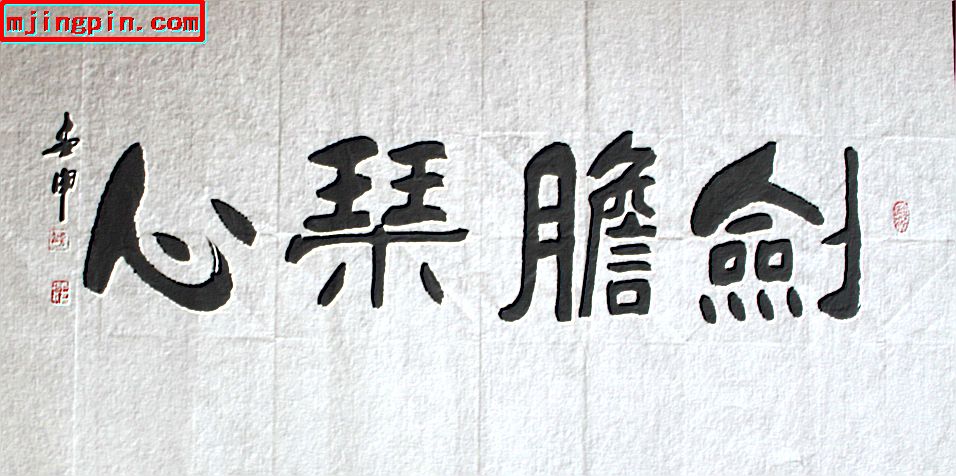 mjingpin.com
劍膽琹心
壬申